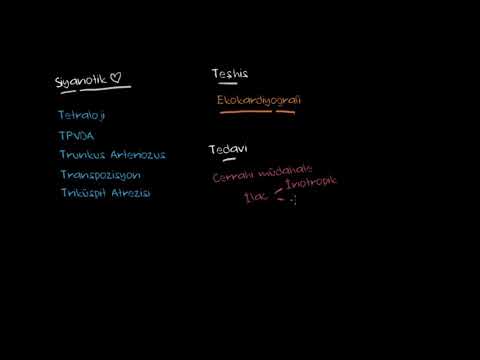 Siyanotik ♡
Tetraloji
TPVDA
Trunkus Arteriozus
Transpozisyon
Triküspit Atrezisi
Teşhis
Ekokardiyografi
Tedavi
Cerrahi müdahale
İlaç
İnotropik